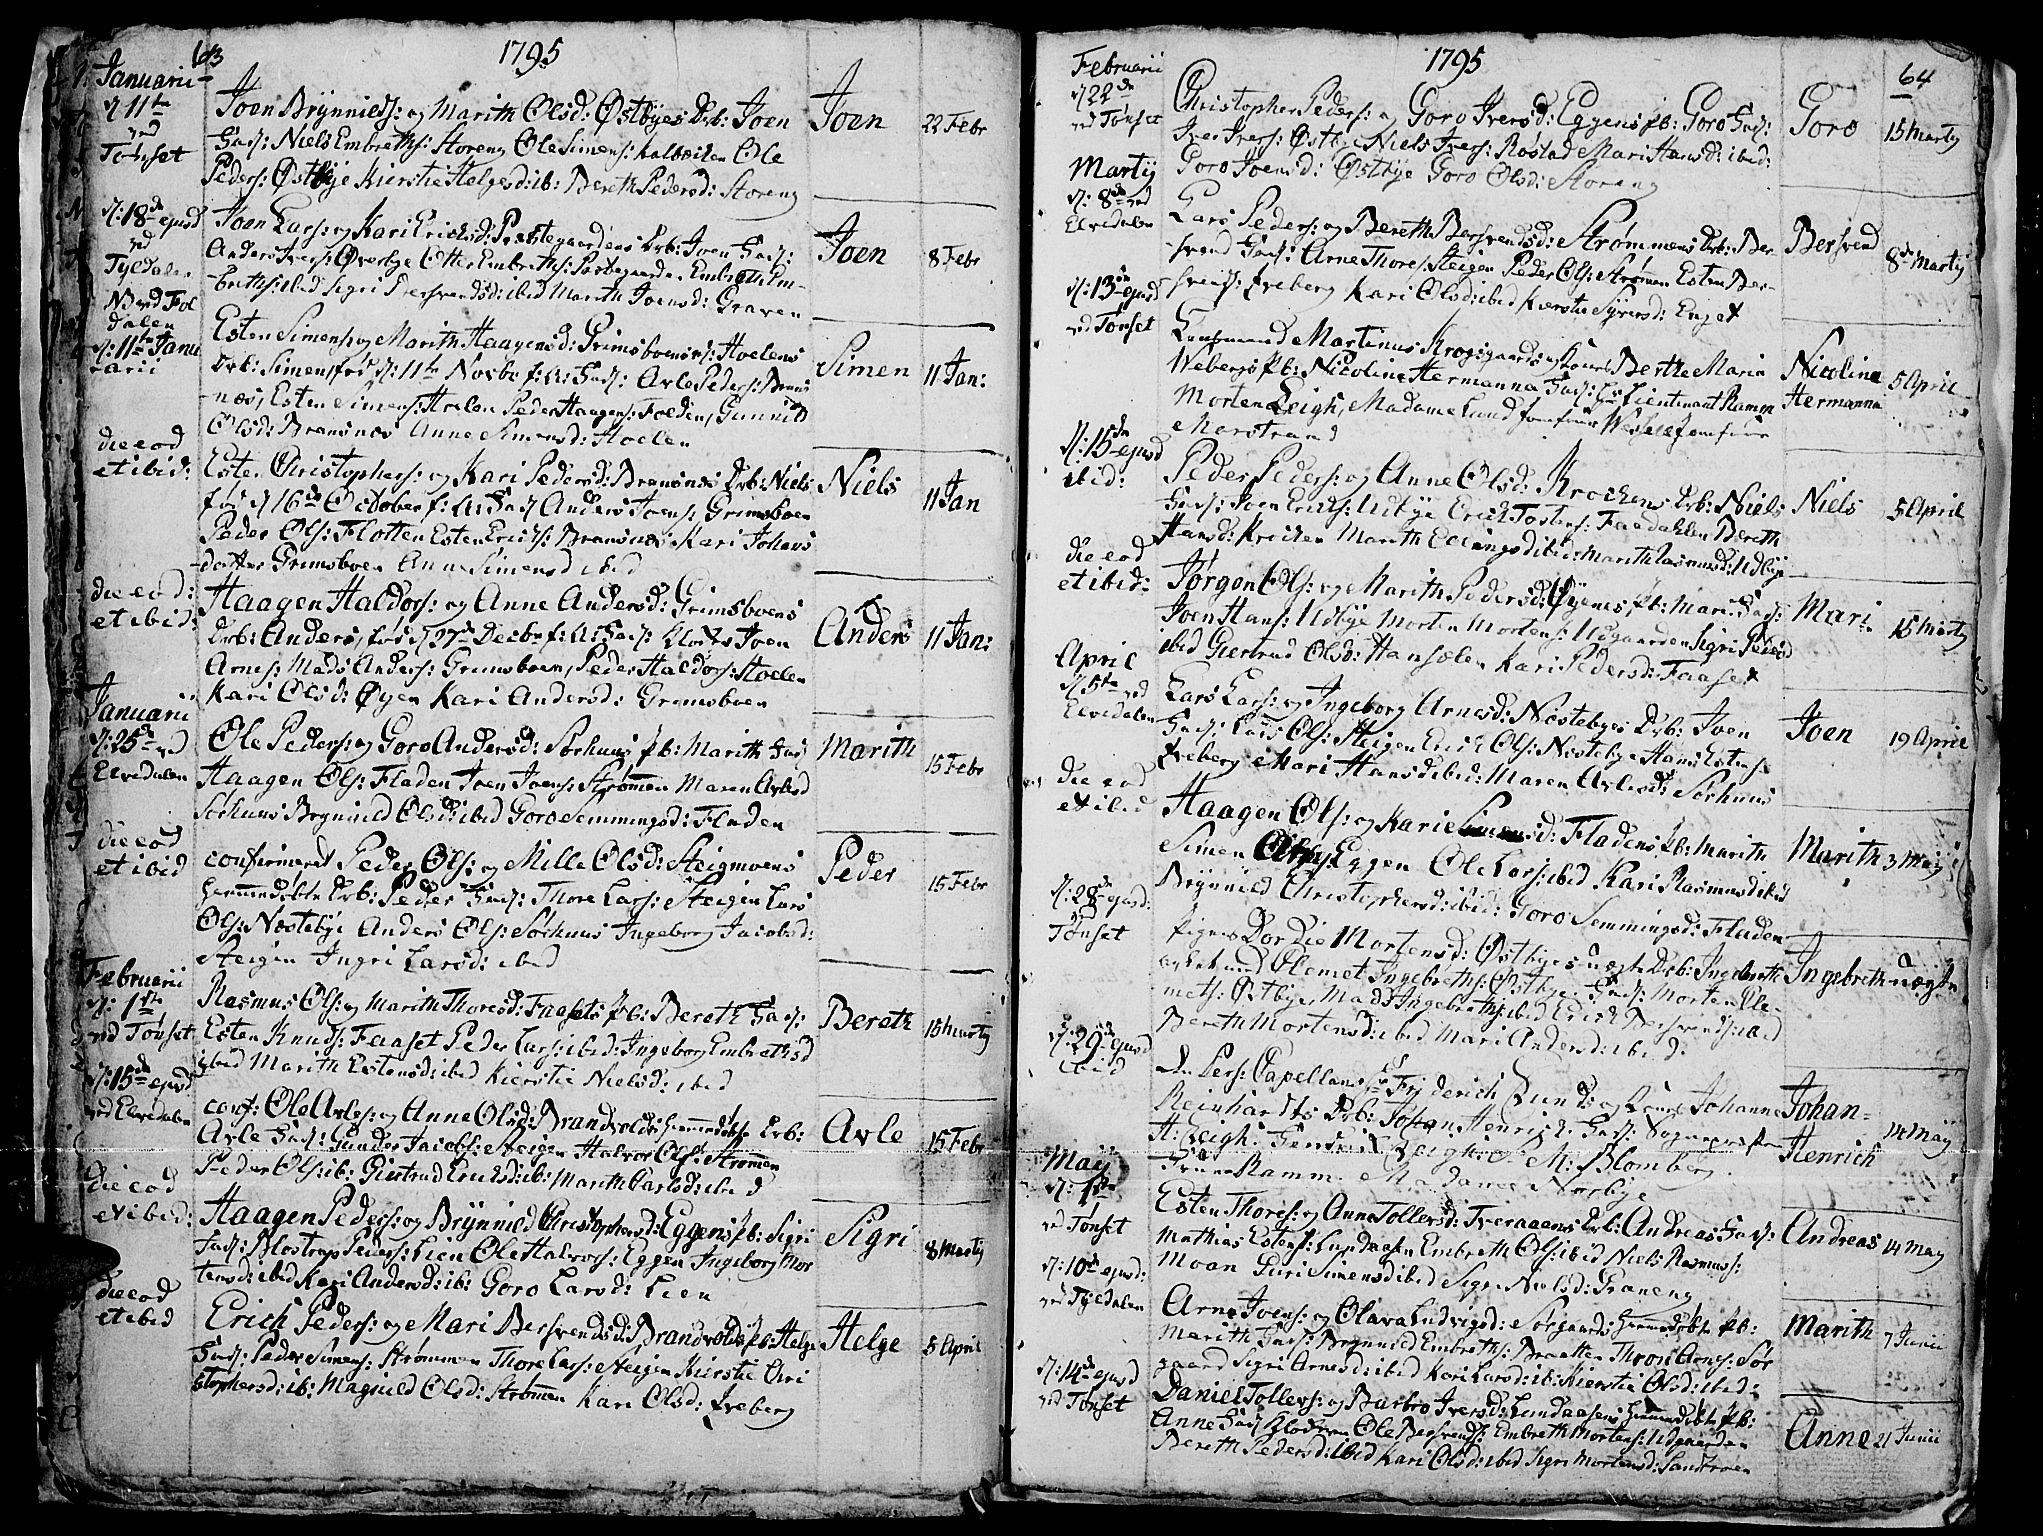 63
1795
Januarii
d 11te
ved
Tønset
Joen Brynnilds: og Marith Olsd: Østbyes Drb: Joen
Fad: Niels Embreths: Storeng Ole Simens: Kalbækken Ole
Peders: Østbye Kierstie Helgesd: ib: Bereth Pedersd: Storeng
Joen
22 Febr
d: 18de ejusd
ved
Tyldalen
Joen Lars: og Kari Ericksd: Præstegaardens Drb: Joen Fad:
Anders Ivers: Øverbye Otter Embreths: Præstegaarden Embreth Em-
breths: ibid Sigri Bersvendsd: ibid Marith Joensd: Graven
Joen
8 Febr
NB ved Fol
dalen
d: 11te Janu
varii
Esten Simens: og Marith Haagensd: Grimsboens Hoelens
Drb: Simen, fød d: 11te Novbr f: A: Fad: Arle Peders: Brans
næs, Esten Simens: Hoelen Peder Haagens: Folden, Gunnild
Olsd: Bransnæs Anne Simensd: Hoelen
Simen
11 Jan:
die eod
et ibid:
Esten Christophers: og Kari Pedersd: Bransnes Drb: Niels
fød d 16de October f: A: Fad Anders Joens: Grimsboen
Peder Ols: Flotten Esten Ericks: Bransnæs Kari Johans
datter Grimsboen Anne Simensd ibid
Niels
11 Jan
die eod:
et ibid:
Haagen Haldors: og Anne Andersd: Grimsboens
Drb: Anders, fød d 27de Decbr f: A: Fad: Joen
Arnes: Mads Anders: Grimsboen, Peder Haldors: Hoelen
Kari Olsd: Øyen Kari Andersd: Grimsboen
Anders
11 Jan:
Januarii
d: 25de ved
Elvedalen
Ole Peders: og Goro Andersd: Sørhuus Pb: Marith Fad
Haagen Ols: Fladen Joen Joens: Strømmen Maren Arlesd
Sørhuus Brynnild Olsd: ibid Goro Semmingsd: Fladen
Marith
15 Febr
die eod
et ibid
confirmeret Peder Ols: og Mille Olsd: Steigmoens
hiemmedøbte Drb: Peder Fad: Thore Lars: Steigen Lars
Ols: Næstebye Anders Ols: Sørhuus Ingeborg Jacobsd:
Steigen Ingri Larsd: ibid
Peder
15 Febr
Februarii
d: 1ste
ved Tønset
Rasmus Ols: og Marith Thoresd: Faasets Pb: Bereth Fad:
Esten Knuds: Faaset Peder Lars: ibid: Ingeborg Embrethsd
ibid Marith Estensd: ibid Kierstie Nielsd: ibid
Bereth
15 Martij
d: 15de ejusd
ved Elvedalen
conf: Ole Arles: og Anne Olsd: Brandvolds hiemmedøbte Drb:
Arle Fad: Gunder Jacobs: Steigen Halvor Ols: Strømmen
Peder Ols: ib: Giertrud Ericksd: ib: Marith Carlsd: ibid
Arle
15 Febr
die eod
et ibid:
Haagen Peders: og Brynnild Christophersd: Eggens Pb: Sigri
Fad: Peders: Lien Ole Halvors: Eggen Ingeborg Mor
tensd: ibid Kari Andersd: ib: Goro Larsd: Lien
Sigri
8 Martij
die eod
et ibid
Erich Peders: og Mari Bersvendsd: Brandvolds Pb: Helge
Fad: Peder Simens: Strømmen Thore Lars: Steigen Kierstie Chri
stophersd: ib: Magnild Olsd: Strømmen Kari Olsd: Kreberg
Helge
5 April
64
1795
Februarii
d 22de
ved Tønset
Christopher Peders: og Goro Iversd: Eggens Pb: Goro Fad:
Iver Ivers: Østbye Niels Ivers: Røstad Mari Hansd: ibid:
Goro Joensd: Østbye Goro Olsd: Storeng
Goro
15 Martij
Martij
d: 8de ved
Elvedalen
Lars Peders: og Bereth Bersvendsd: Strømmens Drb: Ber-
svend Fad: Arne Thores: Steigen Peder Ols: Strømmen Esten Ber-
svends: Kreberg Kari Olsd: ibid Kierstie Syversd: Enget
Bersvend
8de Martij
d: 13de ejusd
ved Tønset
Martinus Krogsgaards og Berthe Maria
Webergs Pb: Nicoline Hermanna Fad: Hr Lieutenant Ramm
Morten Leigh, Madame Lund Jomfrue Jomfrue
Marstrand
Nicoline
Hermanna
5 April
d: 15de ejusd
ibid:
Peder Peders: og Anne Olsd: Krockens Drb: Niels
Fad: Joen Ericks: Udbye Erick Tostens: Faaedahlen Bereth
Hansd: Krocken Marith Ellingsd ibid: Marith Rasmusd: Udbye
Niels
5 April
die eod
et ibid:
Jørgen Ols: og Marith Pedersd: Øyenes Pb: Mari Fad:
Joen Hans: Udbye Morten Mortens: Udgaarden Sigri Pedersd
ibid Giertrud Olsd: Hansælen Kari Pedersd: Faaset
Mari
15 Martij
April
d: 5te ved
Elvedalen
Lars Lars: og Ingeborg Arnesd: Næstebyes Drb: Joen
Fad: Lars Ols: Steigen Erick Ols: Næstebye Hans Estens:
Kreberg Mari Hansd ibid: Maren Arlesd: Sørhuus
Joen
19 April
die eod
et ibid
Haagen Ols: og Karie Simensd: Fladens Pb: Marith
Simen Ols: Eggen Ole Lars: ibid Kari Rasmusd ibid
Brynnild Christophersd: ibid: Goro Semmingsd: Fladen
Marith
3 Maij
d: 28de ejusd:
ved
Tønset
Pigen Dordie Mortensd: Østbyes uægte Drb: Ingebreth
avlet med Clemet Ingebreths: Østbye: Fad: Morten Cle-
mets: Østbye, Mads Ingebreths: ibid Erick Bersvends: ibid
Bereth Mortensd: ibid Mari Andersd: ibid:
Ingebreth
uægte
d: 29de ejusd
ibid
Pers: Capellans Hr Friderich Lunds og Johanne
Reinhardts Drb: Johan Henrich: Fad: Sognepræsten
H: Leigh: Leigh: M: Blomberg.
Frue Ramm. Madame Norbye
Johan-
Henrich
14 Maij
May
d: 1ste
ved Tønset
Esten Thores: og Anne Tollersd: Tveraaens Drb: Andreas Fad:
Mathias Estens: Lundaasen Embreth Ols: ibid Niels Rasmus:
Moan Guri Simensd ibid Sigri Nielsd: Traneng
Andreas
14 May
d: 10de ejusd:
ved Tyldalen
Arne Joens: og Olava Ludvigsd: Sørgaards hiemmedøbte Pb:
Marith Fad: Brynnild Embreths: Braatten Thron Arnes: Sør
gaard Sigri Arnesd: ibid Kari Larsd: ib: Kierstie Olsd: ibid:
Marith
7 Junii
d: 14de ejusd
ved Tønset
Daniel Tollers: og Barbro Iversd: Lundaasens hiemmedøbte Pb:
Anne Fad: Ole Bersvends: Embreth Mortens: Udgaarden
Bereth Pedersd: ibid Kari Olsd: ibid Sigri Mortensd: Sandtroen
Anne
21 Junii